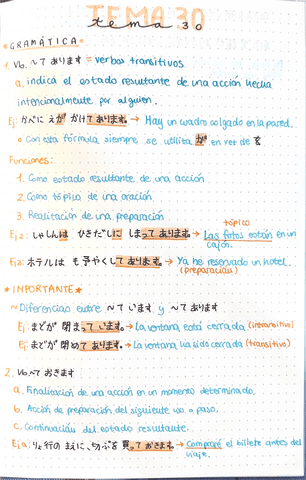 TEMA 30
tema 30
★GRAMÁTICA★
1. Vb. ~て あります = verbos transitivos
a. indica el estado resultante de una acción hecha
intencionalmente por alguien.
Ej: かべに えが かけて あります。→ Hay un cuadro colgado en la pared.
o Con esta fórmula siempre se utilita が en vez de を
Funciones:
1. Como estado resultante de una acción
2. Como tópico de una oración.
3. Realitación de una preparación
tópico
Ej2: しゃしんは ひきだしに しまって あります。→ Las fotos están en un
cajón.
Ej2: ホテルは もう よやくして あります。→ Ya he reservado un hotel.
(preparación)
★IMPORTANTE★
~Diferencias entre ~て います y ~て あります
Ej: まどが 閉まって います。→ La ventana está cerrada (intransitivo)
Ej: まどが 閉めて あります。→ La ventana ha sido cerrada (transitivo)
2. Vb.~て おきます
a. Finalitación de una acción en un momento determinado.
b. Acción de preparación del siguiente uso o paso.
c. Continuación del estado resultante.
Ej.a: りょ行の まえに、切ぷを 買って おきます。→ Compraré el billete antes del
viaje.